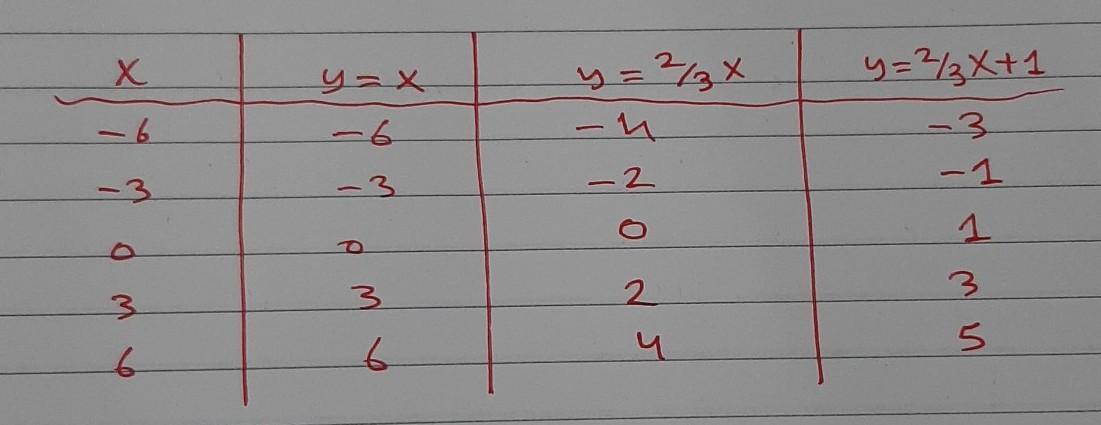 x y = x y = 2/3 x y = 2/3 x + 1
-6 -6 -4 -3
-3 -3 -2 -1
0 0 0 1
3 3 2 3
6 6 4 5